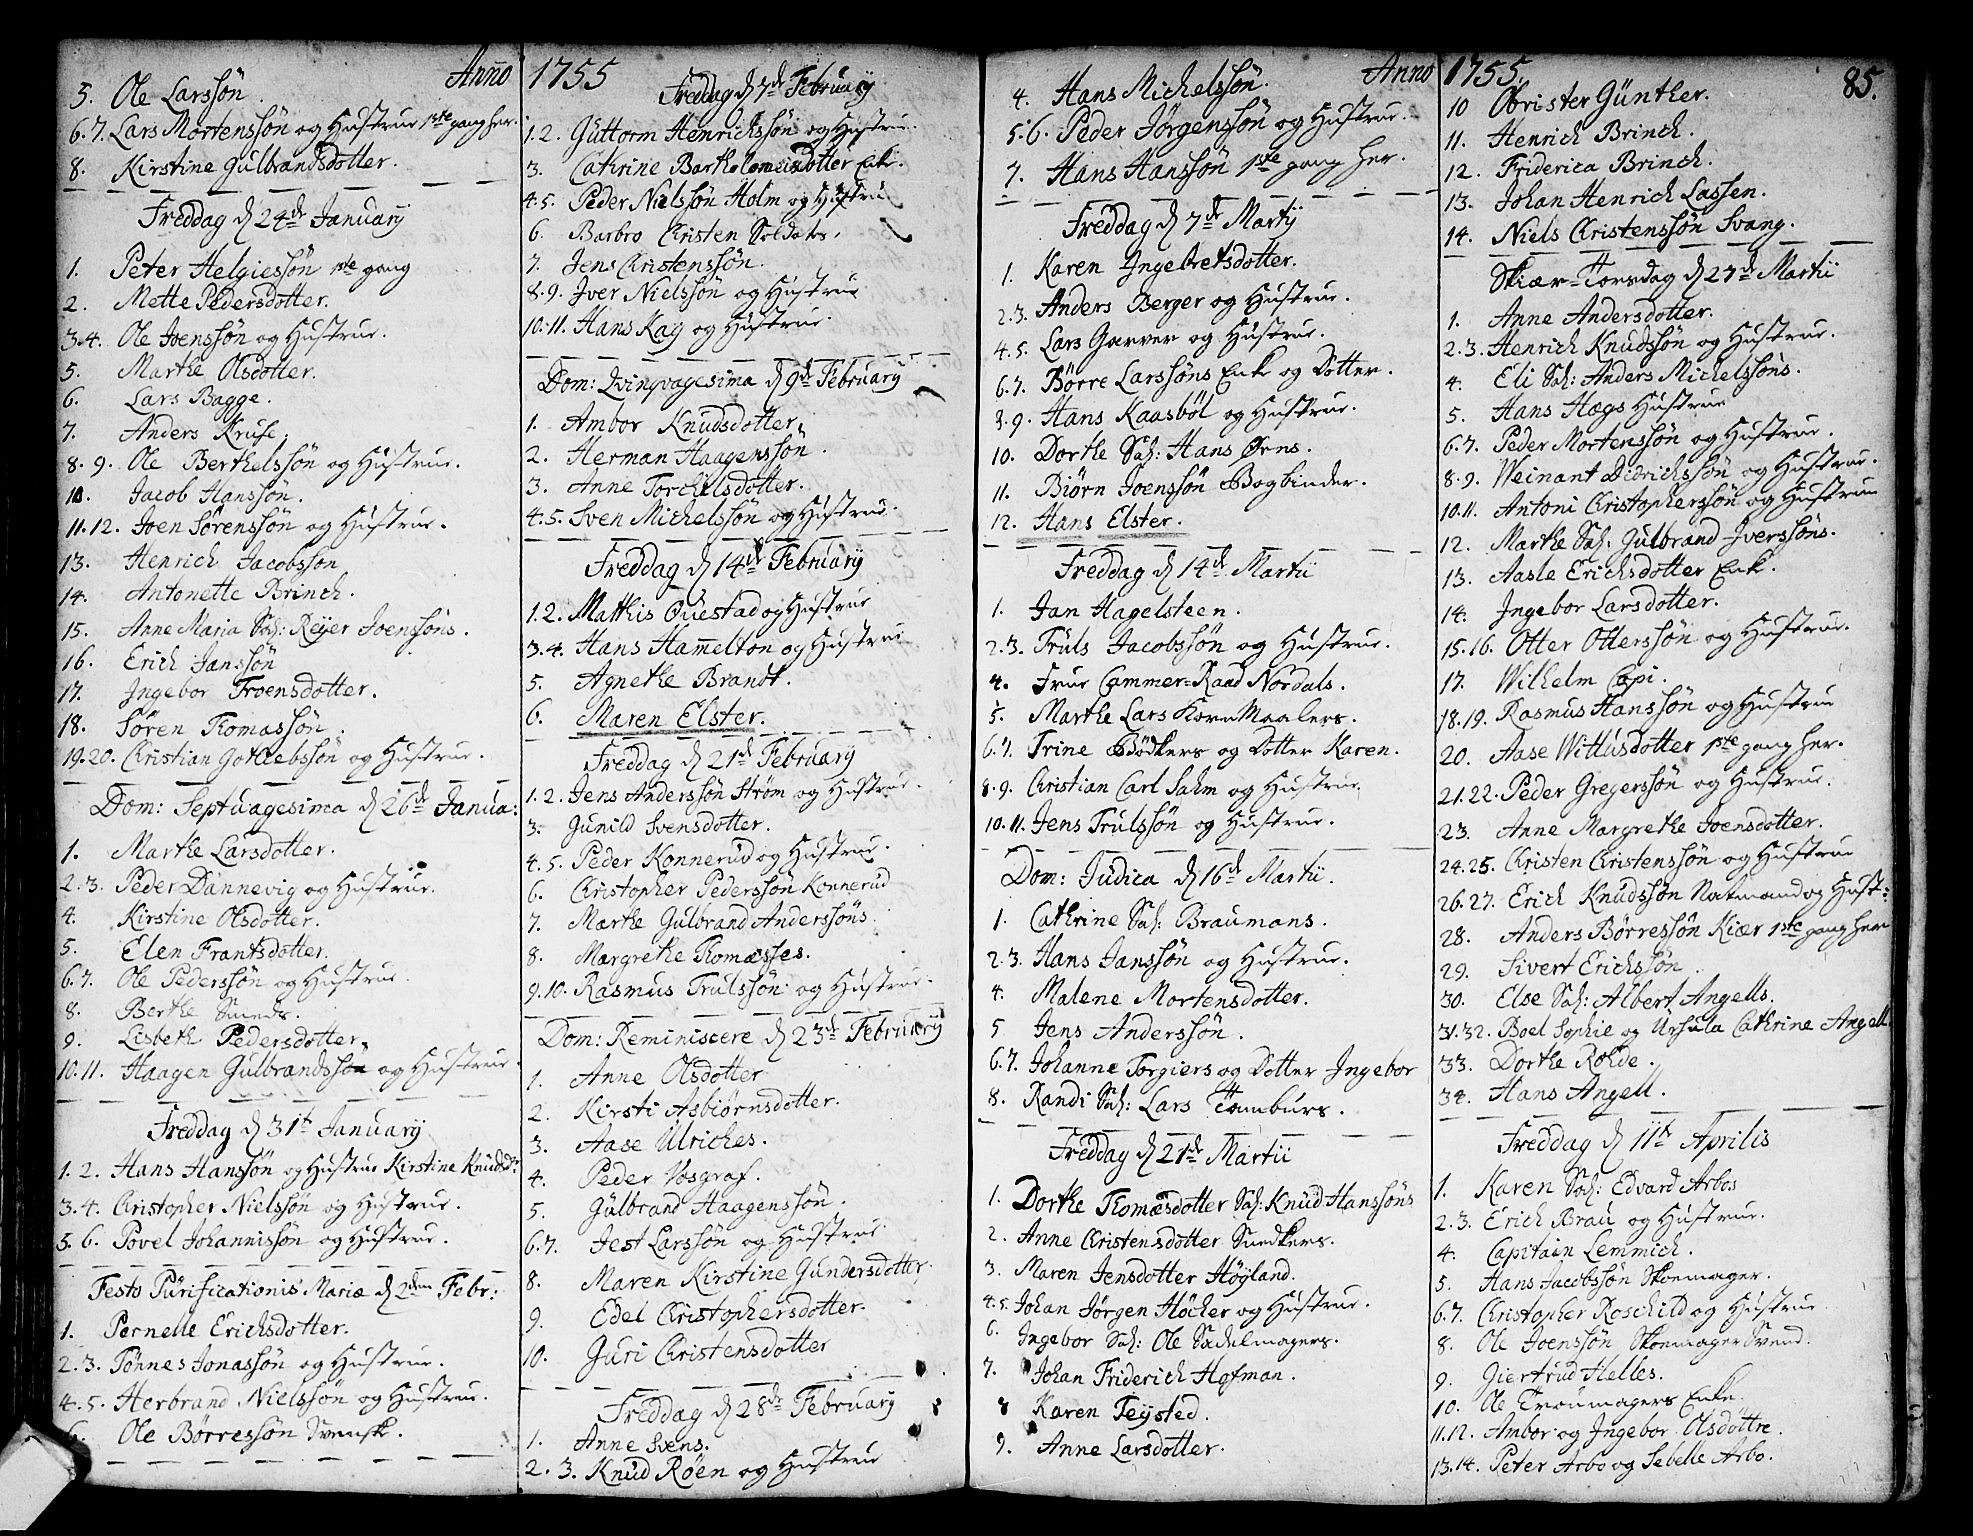 Anno 1755
5. Ole Larssøn
6.7. Lars Mortenssøn og Hustrue 1ste gang her.
8. Kirstine Gulbrandsdotter.
Freddag d 24de January
1. Peter Helgiessøn 1ste gang
2. Mette Pedersdotter.
3.4. Ole Joenssøn og Hustrue.
5. Marthe Olsdotter.
6. Lars Bagge.
7. Anders Kruse.
8. 9. Ole Berthelssøn og Hustrue.
10. Jacob Hanssøn.
11.12. Joen Sørenssøn og Hustrue.
13. Henrich Jacobssøn
14. Antonette Brinch.
15. Anne Maria Sal: Reyer Joenssøns.
16. Erich Janssøn
17. Ingebor Troensdotter.
18. Søren Thomassøn.
19.20. Christian Gotliebssøn og Hustrue.
Dom: Septuagesima d 26de Janua:
1. Marthe Larsdotter.
2.3. Peder Dannevig og Hustrue.
4. Kirstine Olsdotter.
5. Elen Frantsdotter.
6.7. Ole Pederssøn og Hustrue.
8. Berthe Smeds.
9. Lisbeth Pedersdotter.
10.11. Haagen Gulbrandssøn og Hustrue.
Freddag d 31te January
1. 2. Hans Hanssøn og Hustrue Kirstine Knudd:
3.4. Christopher Nielssøn og Hustrue.
5. 6. Povel Johannissøn og Hustrue.
Festo Purificationis Mariæ d 2den Febr:
1. Pernelle Erichsdotter.
2.3. Tønnes Jonassøn og Hustrue.
4.5. Herbrand Nielssøn og Hustrue.
6. Ole Børressøn Svensk.
Freddag d 7de February
1.2. Guttorm Henrichssøn og Hustrue.
3. Catrine Bartholomeusdotter Enke.
4.5. Peder Nielssøn Holm og Hustrue
6. Barbro Christen Soldats.
7. Jens Christenssøn.
8.9. Iver Nielssøn og Hustrue
10.11. Hans Kay og Hustrue.
Dom: Qvinqvagesima d 9de February
1. Ambor Knudsdotter.
2. Herman Haagenssøn.
3. Anne Torchelsdotter.
4.5. Sven Michelssøn og Hustrue.
Freddag d 14de February
1.2. Mathis Questad og Hustrue
3.4. Hans Hamelton og Hustrue
5. Agnethe Brandt.
6. Maren Elster.
Freddag d 21de February
1.2. Jens Anderssøn Strøm og Hustrue.
3. Gunild Svensdotter.
4.5. Peder Konnerud og Hustrue.
6. Christopher Pederssøn Konnerud
7. Marthe Gulbrand Anderssøns.
8. Margrethe Thomæsses.
9.10. Rasmus Trulssøn og Hustrue.
Dom: Reminiscere d 23de February
1. Anne Olsdotter
2. Kirsti Asbiørnsdotter.
3. Aase Ulriches.
4. Peder Vosgraf.
5. Gulbrand Haagenssøn.
6.7. Jest Larssøn og Hustrue
8. Maren Kirstine Gundersdotter.
9. Edel Christophersdotter.
10. Guri Christensdotter
Freddag d 28de February
1. Anne Svens.
2. 3. Knud Røen og Hustrue
Anno 1755. 85.
4. Hans Michelssøn.
5.6. Peder Jørgenssøn og Hustrue.
7. Hans Hanssøn 1ste gang her.
Freddag d 7de Martij
1. Karen Ingebretsdotter.
2.3. Anders Berger og Hustrue.
4.5. Lars Garver og Hustrue.
6.7. Børre Larssøns Enke og Dotter.
8.9. Hans Kaasbøl og Hustrue.
10. Dorthe Sal: Hans Ørns.
11. Biørn Joenssøn Bogbinder.
12. Hans Elster.
Freddag d 14de Martii
1. Jan Hagelsteen.
2.3. Truls Jacobssøn og Hustrue.
4. Frue Cammer-Raad Nordals.
5. Marthe Lars KornMaalers.
6.7. Trine Bødkers og Dotter Karen.
8.9. Christian Carl Sahm og Hustrue.
10.11. Jens Trulssøn og Hustrue.
Dom: Judica d 16de Martii.
1. Cathrine Sal: Braumans.
2.3. Hans Janssøn og Hustrue.
4. Malene Mortensdotter.
5 Jens Anderssøn.
6.7. Johanne Torgiers og Dotter Ingebor
8. Randi Sal: Lars Tamburs.
Freddag d 21de Martii
1. Dorthe Thomæsdotter Sal: Knud Hanssøns
2. Anne Christensdotter Snedkers.
3. Maren Jensdotter Høyland.
4.5. Johan Jørgen Høcker og Hustrue.
6. Ingebor Sal: Ole Sadelmagers.
7. Johan Friderich Hofman.
8 Karen Teysted.
9. Anne Larsdotter.
10 Obrister Günther.
11. Henrich Brinch.
12. Friderica Brinch.
13. Johan Henrich Lassen.
14. Niels Christenssøn Svang.
Skiær-Torsdag d 27de Martii
1. Anne Andersdotter.
2.3. Henrich Knudssøn og Hustrue.
4. Eli Sal: Anders Michelssøns.
5. Hans Hægs Hustrue
6.7. Peder Mortenssøn og Hustrue.
8.9. Weinant Didrichssøn og Hustrue.
10.11. Antoni Christopherssøn og Hustrue
12. Marthe Sal: Gulbrand Iverssøns.
13. Aasle Erichsdotter Enke.
14. Ingebor Larsdotter.
15.16. Otter Otterssøn og Hustrue.
17. Wilhelm Copi.
18.19. Rasmus Hanssøn og Hustrue
20. Aase Wittusdotter 1ste gang her.
21.22. Peder Gregerssøn og Hustrue.
23. Anne Margrethe Joensdotter.
24.25. Christen Christenssøn og Hustrue
26.27. Erich Knudssøn Natmand og Hust:
28. Anders Børressøn Kiær 1ste gang her
29. Sivert Erichssøn.
30. Else Sal: Albert Angells.
31.32. Boel Sophie og Ursula Cathrine Angell.
33. Dorthe Rohde.
34. Hans Angell.
Freddag d 11te Aprilis
1. Karen Sal: Edvard Arbos
2.3. Erich Brau og Hustrue.
4. Capitain Lemmich.
5. Hans Jacobssøn Skoemager.
6.7. Christopher Roschild og Hustrue
8. Ole Joenssøn Skoemager Svend.
9. Giertrud Helles.
10. Ole Troumagers Enke.
11.12. Ambor og Ingebor Olsdøttre.
13.14. Peter Arbo og Sebelle Arbo.